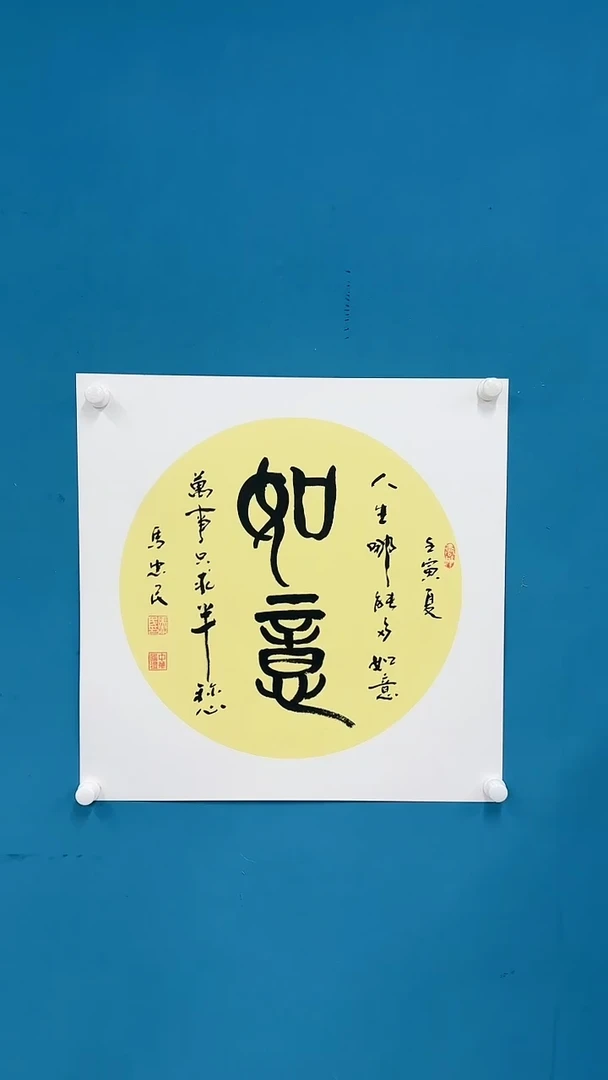 壬寅夏
人生哪能多如意
如意
萬事只求半稱心
馬忠民